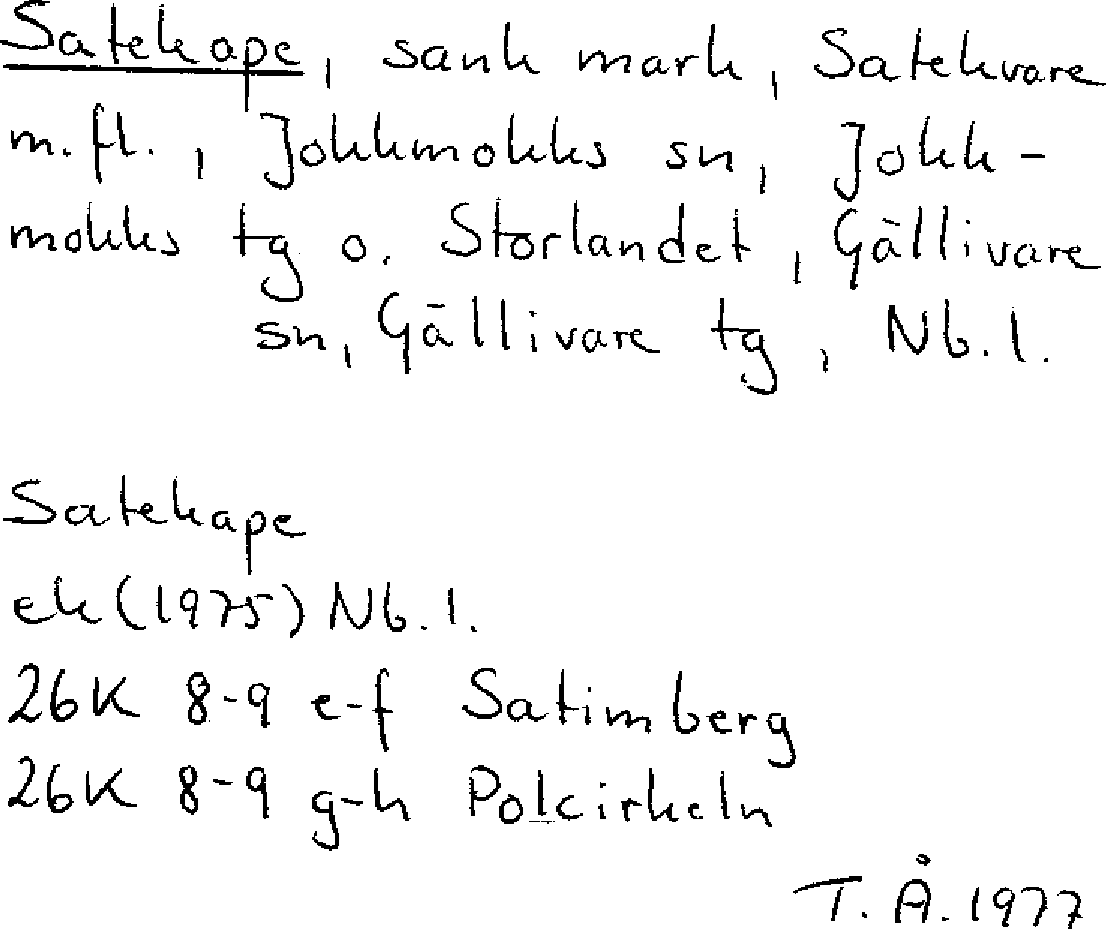 Satekape, sank mark, Satekvare
m.fl., Jokkmokks sn, Jokk-
mokks tg o. Storlandet, Gällivare
sn, Gällivare tg, Nb.l.
Satekape
ek (1975) Nb.l.
26K 8-9 e-f Satimberg
26K 8-9 g-h Polcirkeln
T.Å. 1977